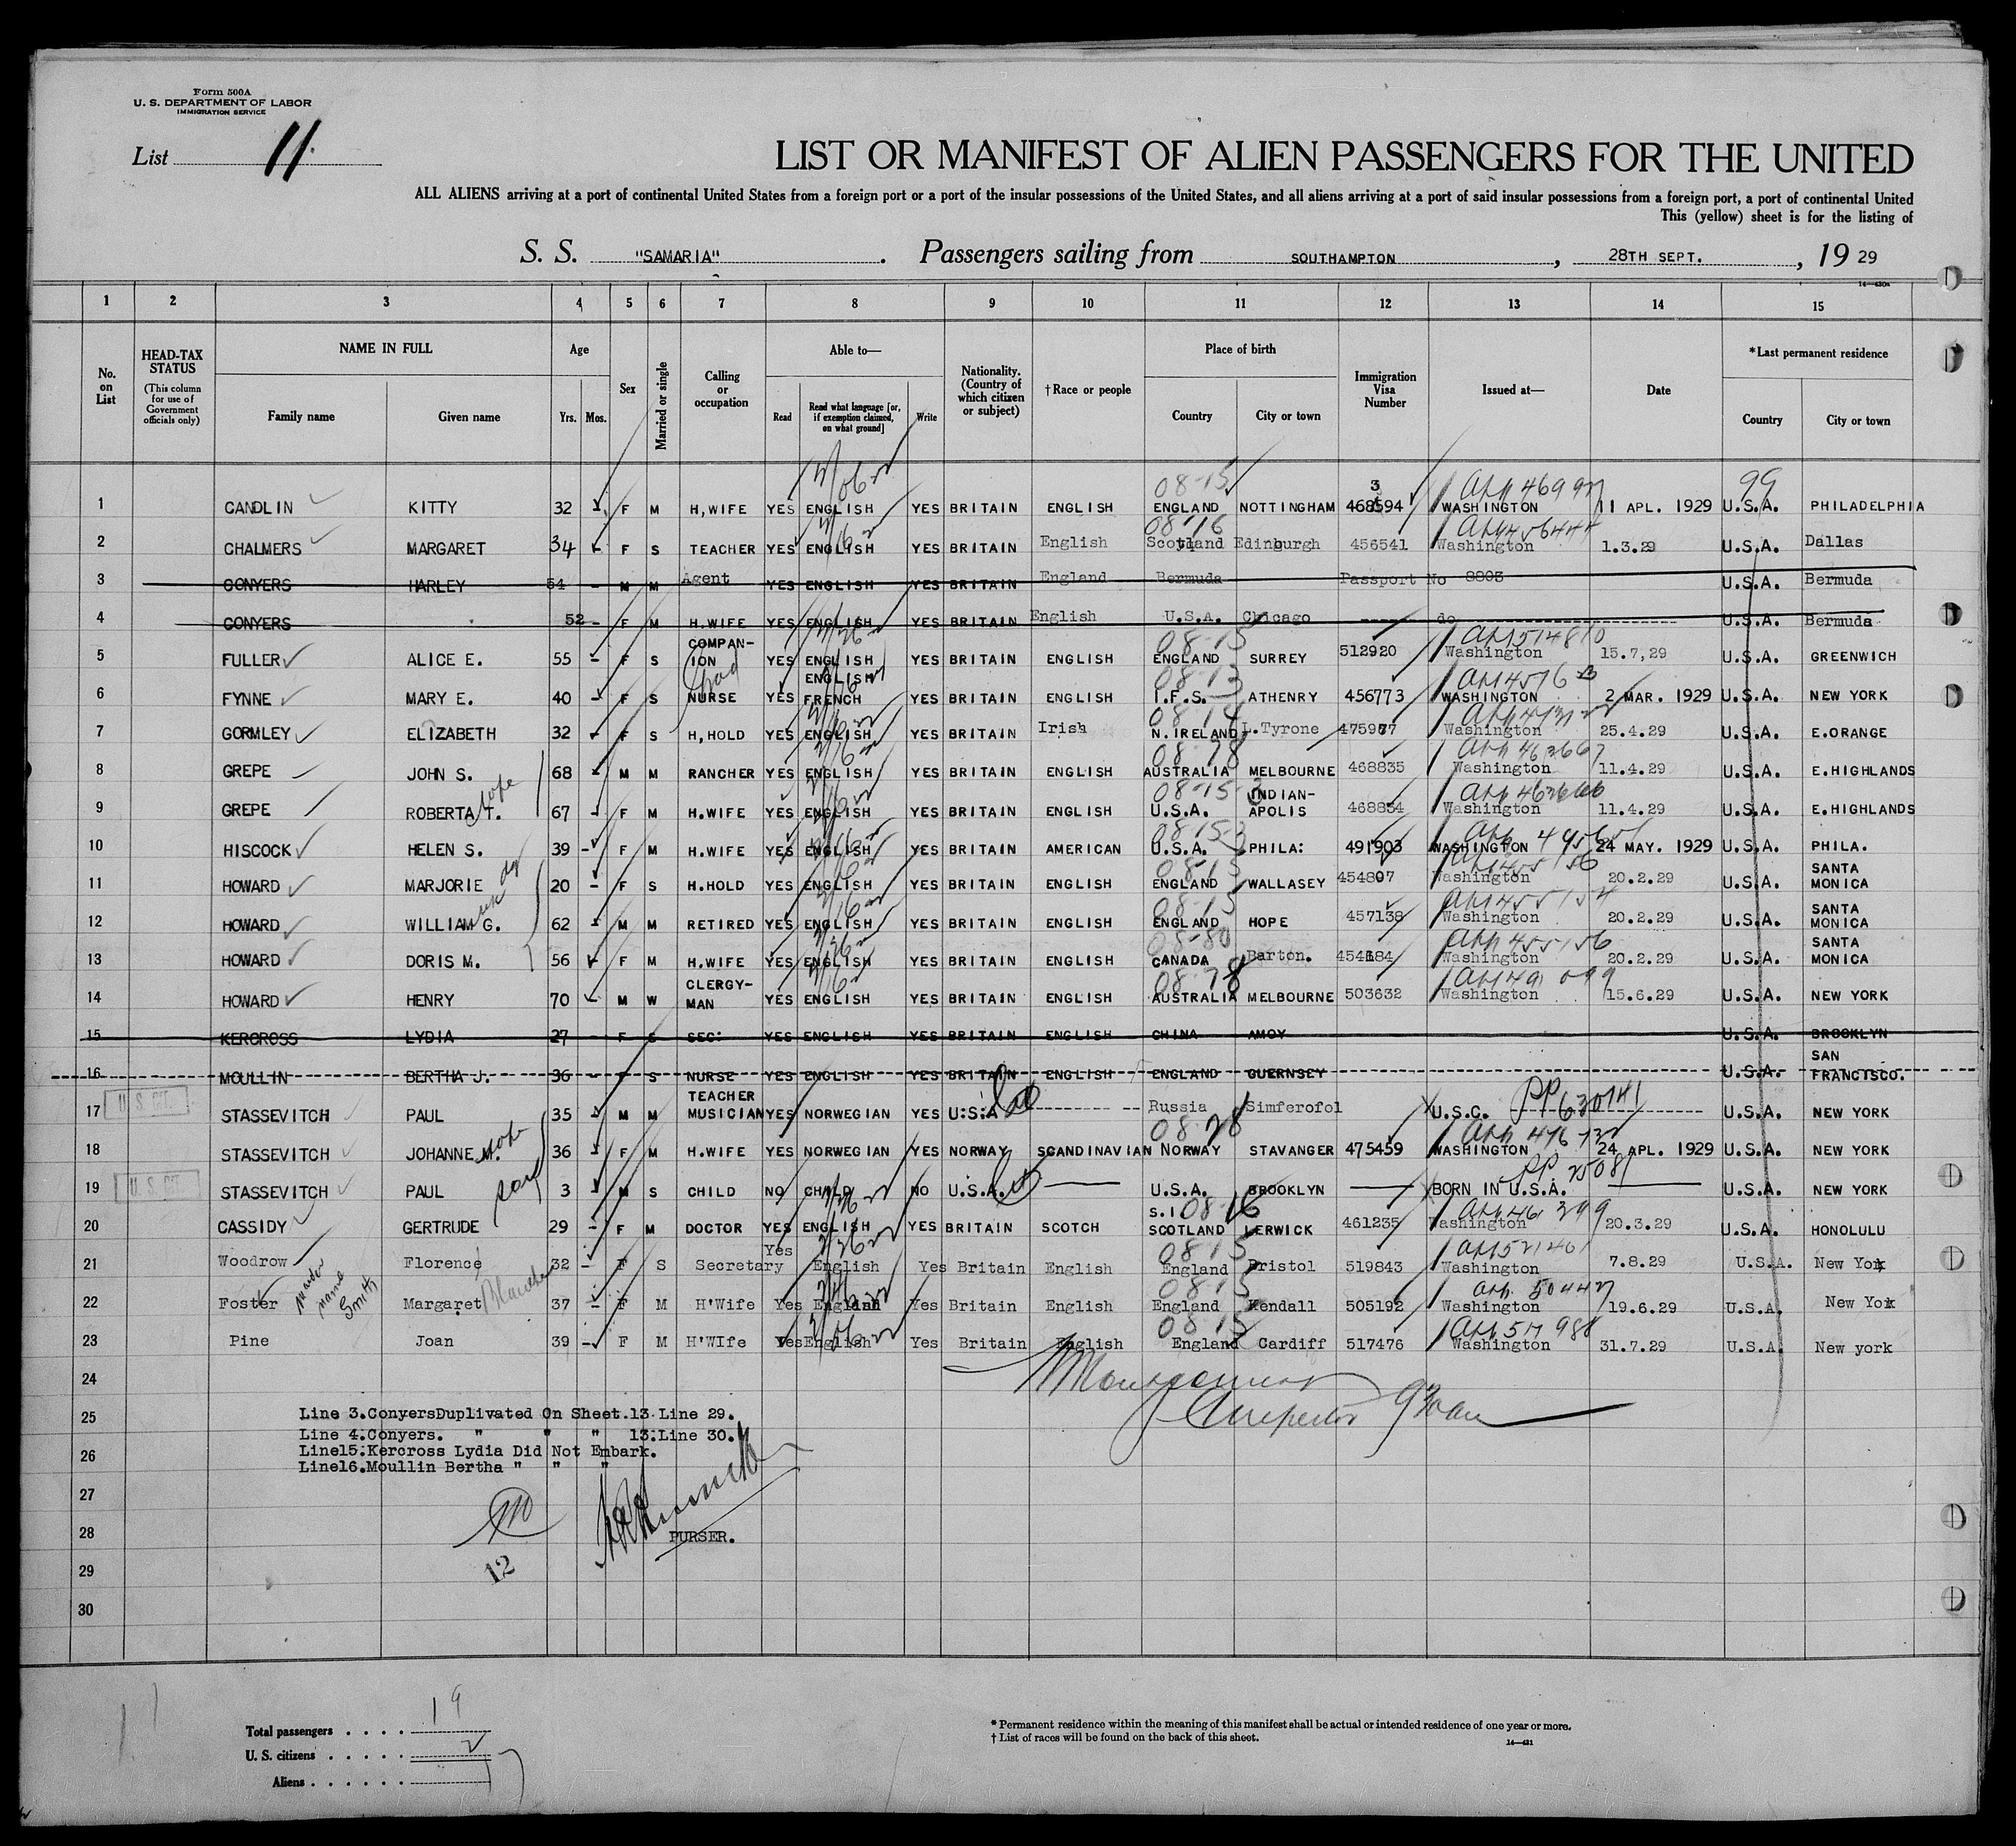 Form 500A
U. S. DEPARTMENT OF LABOR
IMMIGRATION SERVICE
List 11
LIST OR MANIFEST OF ALIEN PASSENGERS FOR THE UNITED
ALL ALIENS arriving at a port of continental United States from a foreign port or a port of the insular possessions of the United States, and all aliens arriving at a port of said insular possessions from a foreign port, a port of continental United
This (yellow) sheet is for the listing of
S. S. "SAMARIA". Passengers sailing from SOUTHAMPTON, 28TH SEPT., 19 29
14—430a
1 2 3 4 5 6 7 8 9 10 11 12 13 14 15
No. on List
HEAD-TAX STATUS (This column for use of Government officials only)
NAME IN FULL Family name Given name
Age Yrs. Mos.
Sex
Married or single
Calling or occupation
Able to— Read Read what language [or, if exemption claimed, on what ground] Write
Nationality. (Country of which citizen or subject)
† Race or people
Place of birth Country City or town
Immigration Visa Number
Issued at—
Date
* Last permanent residence Country City or town
1 CANDLIN KITTY 32 F M H,WIFE YES ENGLISH YES BRITAIN ENGLISH 08-15 ENGLAND NOTTINGHAM 468594 3 WASHINGTON 11 APL. 1929 99 U.S.A. PHILADELPHIA
2 CHALMERS MARGARET 34 - F S TEACHER YES ENGLISH YES BRITAIN English 08-16 Scotland Edinburgh 456541 Washington 1.3.29 U.S.A. Dallas
3 CONYERS HARLEY 54 - M M Agent YES ENGLISH YES BRITAIN England Bermuda Passport No 8803 U.S.A. Bermuda
4 CONYERS 52 - F M H.WIFE YES ENGLISH YES BRITAIN English U.S.A. Chicago ---- do ---- U.S.A. Bermuda
5 FULLER ALICE E. 55 - F S COMPANION YES ENGLISH YES BRITAIN ENGLISH 08-15 ENGLAND SURREY 512920 Washington 15.7,29 U.S.A. GREENWICH
6 FYNNE MARY E. 40 - F S NURSE YES ENGLISH FRENCH YES BRITAIN ENGLISH 08-13 I.F.S. ATHENRY 456773 WASHINGTON 2 MAR. 1929 U.S.A. NEW YORK
7 GORMLEY ELIZABETH 32 - F S H,HOLD YES ENGLISH YES BRITAIN Irish 08-14 N.IRELAND Tyrone 475977 Washington 25.4.29 U.S.A. E.ORANGE
8 GREPE JOHN S. 68 - M M RANCHER YES ENGLISH YES BRITAIN ENGLISH 08-78 AUSTRALIA MELBOURNE 468835 Washington 11.4.29 U.S.A. E.HIGHLANDS
9 GREPE ROBERTA T. 67 - F M H.WIFE YES ENGLISH YES BRITAIN ENGLISH 08-15 U.S.A. INDIAN-APOLIS 468834 Washington 11.4.29 U.S.A. E.HIGHLANDS
10 HISCOCK HELEN S. 39 - F M H.WIFE YES ENGLISH YES BRITAIN AMERICAN U.S.A. PHILA: 491903 WASHINGTON 24 MAY. 1929 U.S.A. PHILA.
11 HOWARD MARJORIE 20 - F S H.HOLD YES ENGLISH YES BRITAIN ENGLISH 08-15 ENGLAND WALLASEY 454807 Washington 20.2.29 U.S.A. SANTA MONICA
12 HOWARD WILLIAM G. 62 - M M RETIRED YES ENGLISH YES BRITAIN ENGLISH 08-15 ENGLAND HOPE 457138 Washington 20.2.29 U.S.A. SANTA MONICA
13 HOWARD DORIS M. 56 F M H,WIFE YES ENGLISH YES BRITAIN ENGLISH 08-80 CANADA Barton. Washington 20.2.29 U.S.A. SANTA MONICA
14 HOWARD HENRY 70 - M W CLERGY-MAN YES ENGLISH YES BRITAIN ENGLISH 08-78 AUSTRALIA MELBOURNE 503632 Washington 15.6.29 U.S.A. NEW YORK
15 KERCROSS LYDIA 27 - F S SEC: YES ENGLISH YES BRITAIN ENGLISH CHINA AMOY U.S.A. BROOKLYN
16 MOULLIN BERTHA J. 36 - F S NURSE YES ENGLISH YES BRITAIN ENGLISH ENGLAND GUERNSEY U.S.A. SAN FRANCISCO.
17 U.S. CIT. STASSEVITCH PAUL 35 - M M TEACHER MUSICIAN YES NORWEGIAN YES U:S:A Russia Simferofol U.S.C. PP 630741 U.S.A. NEW YORK
18 STASSEVITCH JOHANNE M. 36 - F M H.WIFE YES NORWEGIAN YES NORWAY SCANDINAVIAN 08-28 NORWAY STAVANGER 475459 WASHINGTON 24 APL. 1929 U.S.A. NEW YORK
19 U.S. CIT. STASSEVITCH PAUL 3 - M S CHILD NO CHILD NO U.S.A. U.S.A. BROOKLYN BORN IN U.S.A. U.S.A. NEW YORK
20 CASSIDY GERTRUDE 29 - F M DOCTOR YES ENGLISH YES BRITAIN SCOTCH S.I 08-16 SCOTLAND LERWICK 461235 Washington 20.3.29 U.S.A. HONOLULU
21 Woodrow Florence 32 - F S Secretary Yes English Yes Britain English 08-15 England Bristol 519843 Washington 7.8.29 U.S.A. New York
22 Foster maiden name Smith Margaret Blanche 37 - F M H'Wife Yes English Yes Britain English 08-15 England Kendall 505192 Washington 19.6.29 U.S.A. New York
23 Pine Joan 39 - F M H'WIfe Yes English Yes Britain English 08-15 England Cardiff 517476 Washington 31.7.29 U.S.A. New york
24
25
26
27
28
29
30
Line 3.ConyersDuplivated On Sheet.13.Line 29.
Line 4.Conyers. " " " 13.Line 30.
Line15.Kercross Lydia Did Not Embark.
Line16.Moullin Bertha " " "
PURSER.
12
Total passengers . . . . 19
U. S. citizens . . . . . 2
Aliens . . . . . .
* Permanent residence within the meaning of this manifest shall be actual or intended residence of one year or more.
† List of races will be found on the back of this sheet.
14—431